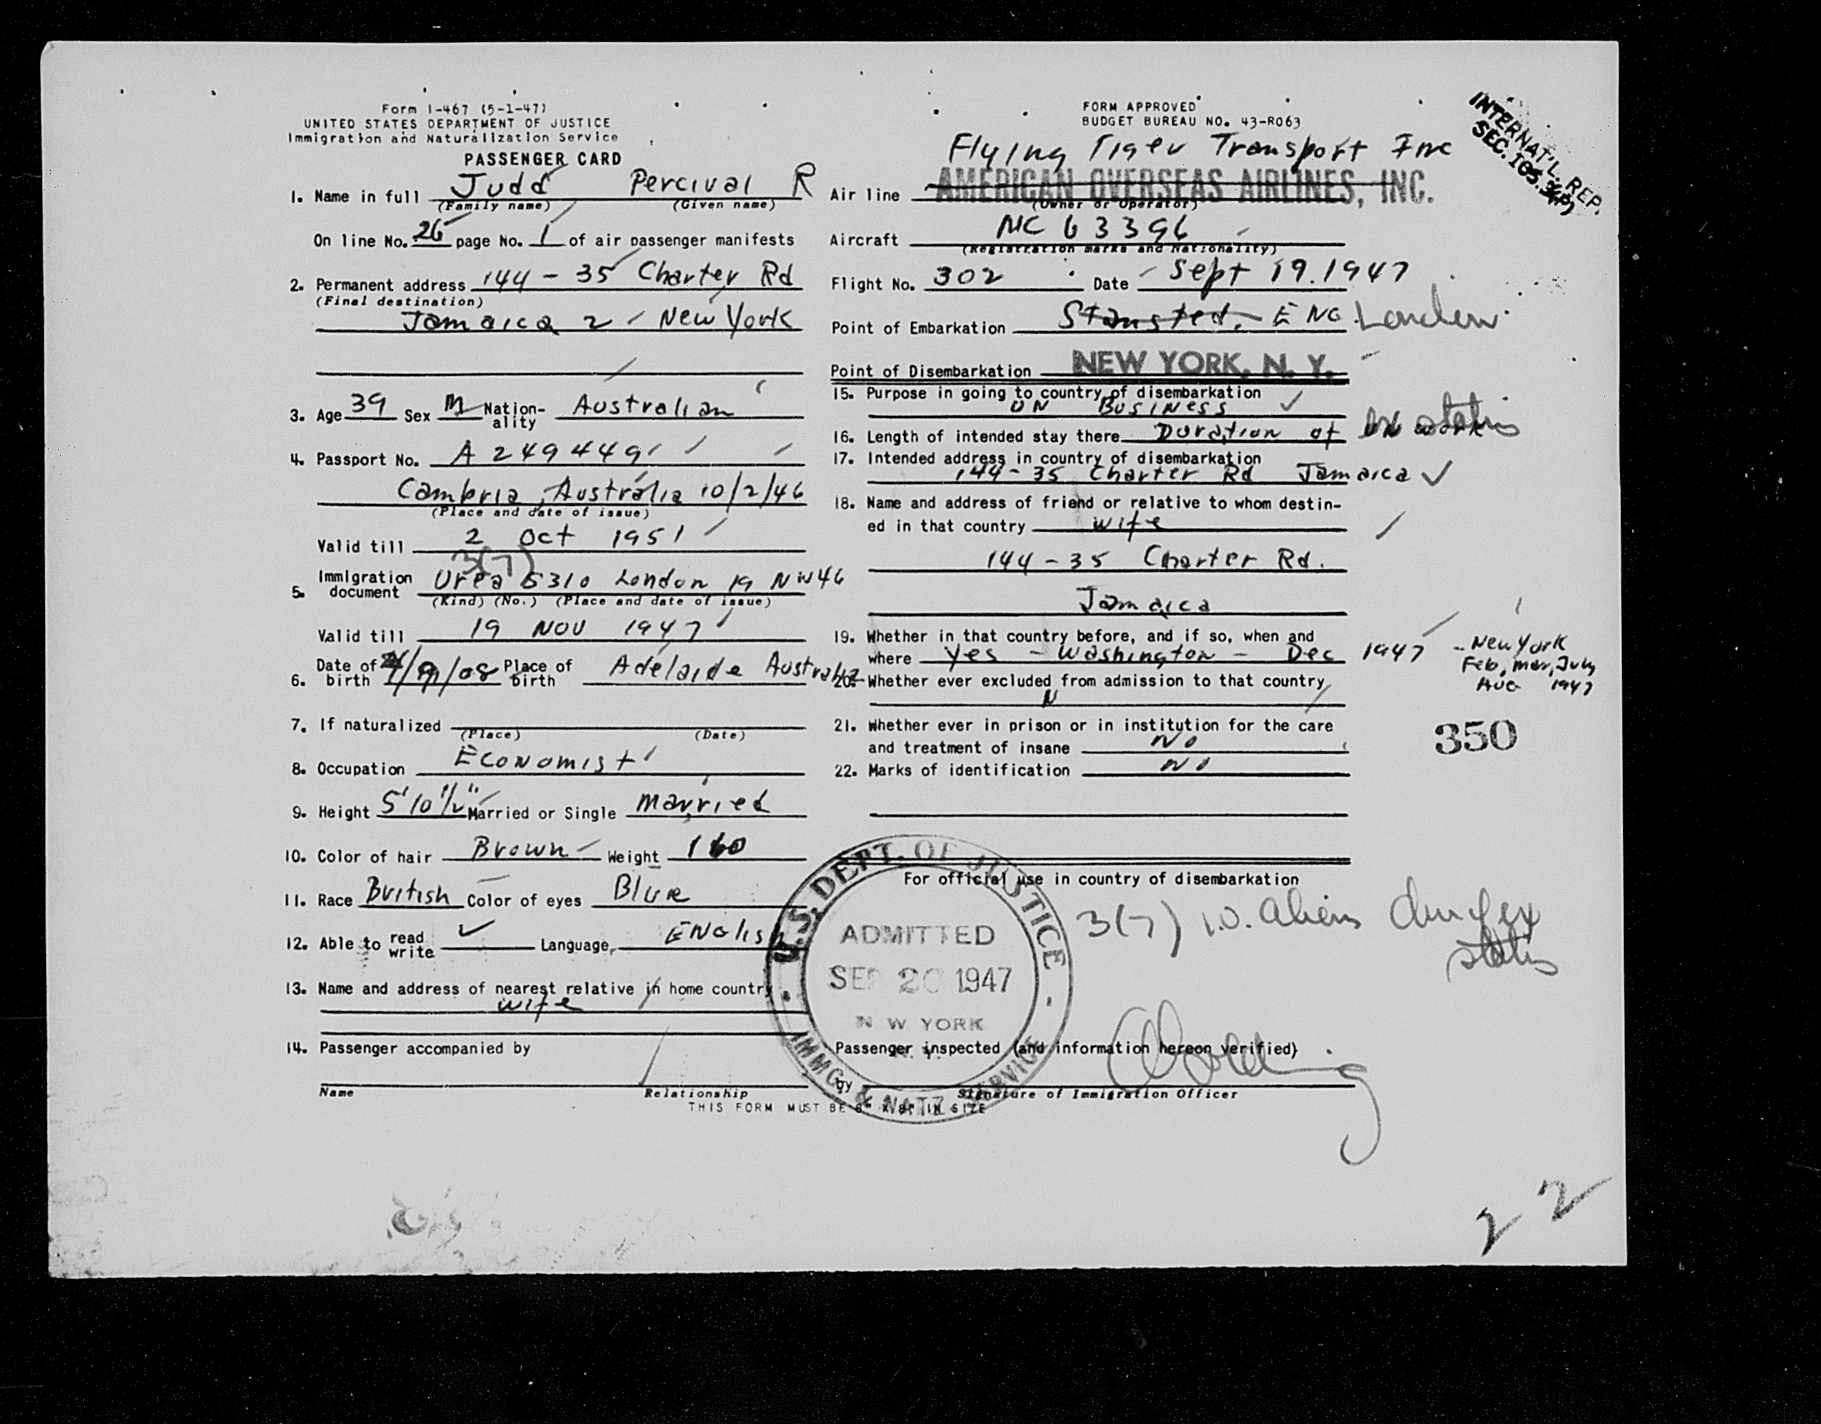 Form I-467 (5-1-47)
UNITED STATES DEPARTMENT OF JUSTICE
Immigration and Naturalization Service
PASSENGER CARD
1. Name in full Judd Percival R
(Family name) (Given name)
On line No. 26 page No. 1 of air passenger manifests
2. Permanent address 144-35 Charter Rd
(Final destination)
Jamaica 2 - New York
3. Age 39 Sex M Nation-ality Australian
4. Passport No. A 249449
Cambria, Australia 10/2/46
(Place and date of issue)
Valid till 2 Oct 1951
3(7)
5. Immigration document 5310 London 19 Nov 46
(Kind) (No.) (Place and date of issue)
Valid till 19 NOV 1947
6. Date of birth /9/08 Place of birth Adelaide Australia
7. If naturalized
(Place) (Date)
8. Occupation Economist
9. Height 5'10 1/2" Married or Single Married
10. Color of hair Brown Weight 160
11. Race British Color of eyes Blue
12. Able to read write ✓ Language ENGlish
13. Name and address of nearest relative in home country
wife
14. Passenger accompanied by
Name Relationship
THIS FORM MUST BE 6" X 8" IN SIZE
FORM APPROVED
BUDGET BUREAU NO. 43-R063
INTERNAT'L. REP.
Flying Tiger Transport Inc
Air line AMERICAN OVERSEAS AIRLINES, INC.
(Owner or Operator)
Aircraft NC 63396
(Registration marks and Nationality)
Flight No. 302 Date Sept 19.1947
Point of Embarkation Stansted, ENG. London
Point of Disembarkation NEW YORK, N. Y.
15. Purpose in going to country of disembarkation
ON BUSINESS ✓
16. Length of intended stay there Duration of status
17. Intended address in country of disembarkation
144-35 Charter Rd Jamaica ✓
18. Name and address of friend or relative to whom destin-
ed in that country wife
144-35 Charter Rd.
Jamaica
19. Whether in that country before, and if so, when and
where Yes - Washington - Dec 1947 - New York
Feb, Mar, July
AUG 1947
20. Whether ever excluded from admission to that country
N
21. Whether ever in prison or in institution for the care
and treatment of insane No
22. Marks of identification No
350
For official use in country of disembarkation
3(7) I.O. aliens dur of ex
status
U.S. DEPT. OF JUSTICE
ADMITTED
SEP 20 1947
N W YORK
N. Y.
IMMG. & NATZ. SERVICE
Passenger inspected (and information hereon verified)
By
Signature of Immigration Officer
22